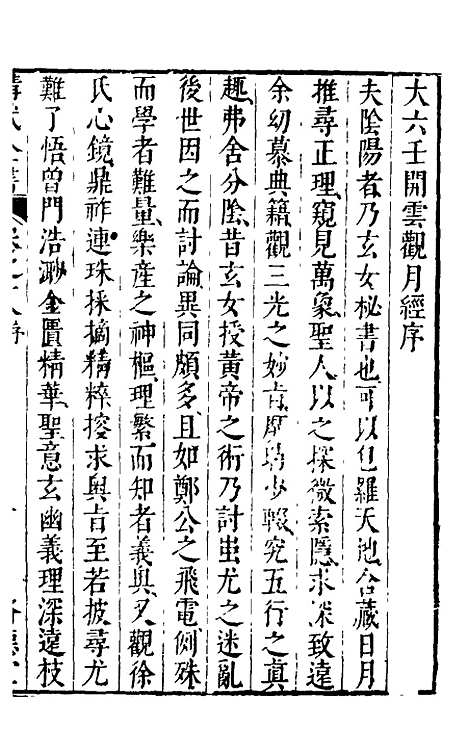 大六壬開雲觀月經序
夫陰陽者乃玄女秘書也可以包羅天地含藏日月
推尋正理窺見萬象聖人以之探微索隱求深致遠
余幼慕典籍觀三光之妙旨靡㫖少輟究五行之真
趣弗舍分陰昔玄女授黃帝之術乃討蚩尤之迷亂
後世因之而討論異同頗多且如鄭公之飛電例殊
而學者難量樂産之神樞理繁而知者義與又觀徐
氏心鏡鼎祚連珠採摘精粹搜求奥旨至若披尋尤
難了悟曾門浩渺金匱精華聖意玄幽義理深遠枝